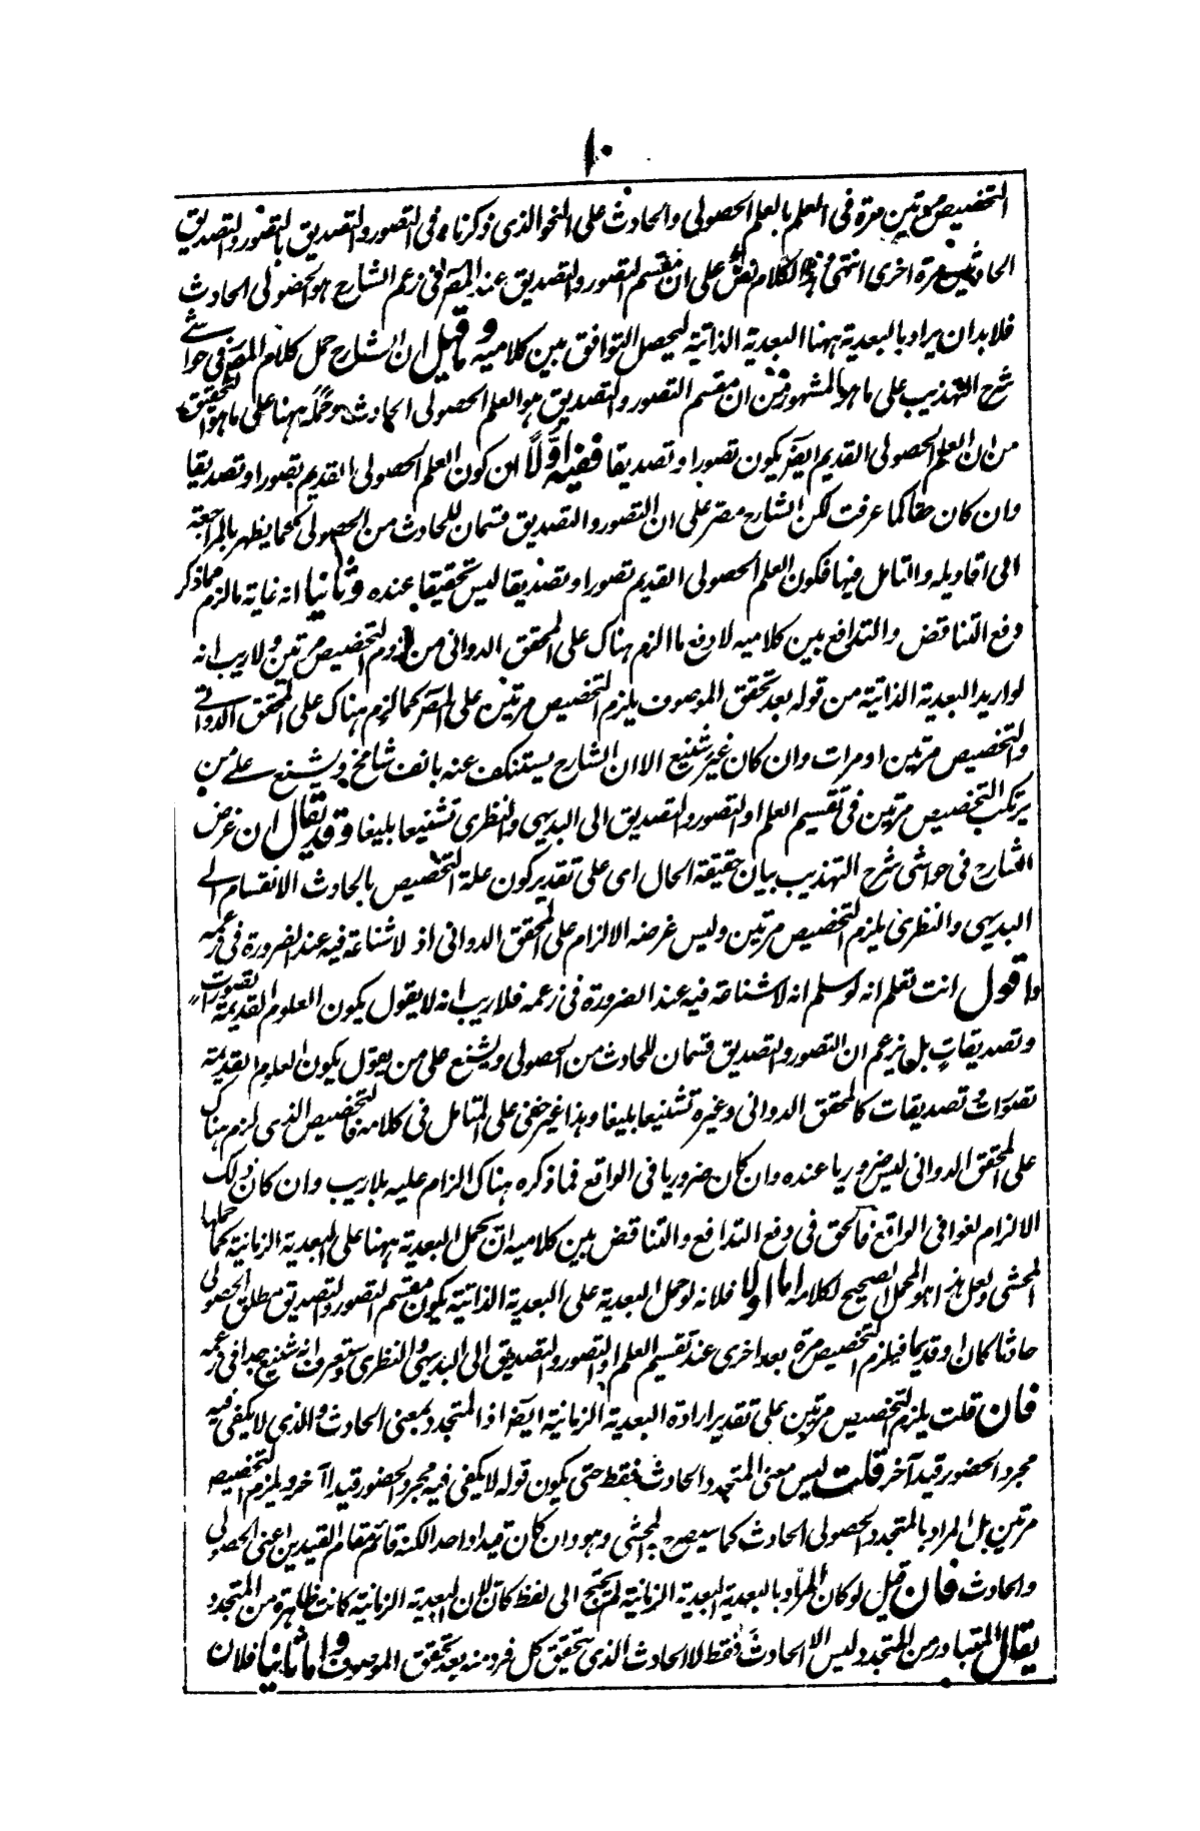 ١٠
التخصيص مرتين مرة فى العلم بالعلم الحصولى والحادث على النحو الذى ذكرناه فى التصور والتصديق بالتصور والتصديق
الحادثين مرة اخرى انتهى فهذا الكلام نص على ان مقسم التصور والتصديق عند المص فى زعم الشارح هو الحصولى الحادث
فلابد ان يراد بالبعدية ههنا البعدية الذاتية ليحصل التوافق بين كلاميه وما قيل ان الشارح حمل كلام المص فى حواشى
شرح التهذيب على ما هو المشهور من ان مقسم التصور والتصديق هو العلم الحصولى الحادث وحمله ههنا على ما هو التحقيق
من ان العلم الحصولى القديم ايضا يكون تصورا وتصديقا ففيه اولا ان كون العلم الحصولى القديم تصورا وتصديقا
وان كان حقا كما عرفت لكن الشارح مصر على ان التصور والتصديق قسمان للحادث من الحصولى كما يظهر بالمراجعة
الى اقاويله والتامل فيها فكون العلم الحصولى القديم تصورا وتصديقا ليس تحقيقا عنده وثانيا انه غاية ما لزم مما ذكر
دفع التناقض والتدافع بين كلاميه لا دفع ما الزم هناك على المحقق الدوانى من لزوم التخصيص مرتين ولاريب انه
لو اريد البعدية الذاتية من قوله بعد تحقق الموصوف يلزم التخصيص مرتين على المص كما لزم هناك على المحقق الدوانى
والتخصيص مرتين او مرات وان كان غير شنيع الا ان الشارح يستنكف عنه بانف شامخ ويشنع على من
يرتكب التخصيص مرتين فى تقسيم العلم او التصور والتصديق الى البديهى والنظرى تشنيعا بليغا وقد يقال ان غرض
الشارح فى حواشى شرح التهذيب بيان حقيقة الحال اى على تقدير كون علة التخصيص بالحادث الانقسام الى
البديهى والنظرى يلزم التخصيص مرتين وليس غرضه الالزام على المحقق الدوانى اذ لا شناعة فيه عند الضرورة فى زعمه
واقول انت تعلم انه لو سلم انه لا شناعة فيه عند الضرورة فى زعمه فلاريب انه لا يقول يكون العلوم القديمة تصورات
وتصديقات بل يزعم ان التصور والتصديق قسمان للحادث من الحصولى ويشنع على من يقول يكون العلوم القديمة
تصورات وتصديقات كالمحقق الدوانى وغيره تشنيعا بليغا وهذا غير خفى على المتامل فى كلامه فالتخصيص الذى لزم هناك
على المحقق الدوانى ليس ضروريا عنده وان كان ضروريا فى الواقع فما ذكره هناك الزام عليه بلاريب وان كان ذلك
الالزام لغوا فى الواقع فالحق فى دفع التدافع والتناقض بين كلاميه ان يحمل البعدية ههنا على البعدية الزمانية كما حملها
المحشى ولعل هذا هو المحمل الصحيح لكلامه اما اولا فلانه لو حمل البعدية على البعدية الذاتية يكون مقسم التصور والتصديق مطلق الحصولى
حادثا كان او قديما فيلزم التخصيص مرة بعد اخرى عند تقسيم العلم او التصور والتصديق الى البديهى والنظرى وستعرف انه شنيع جدا فى زعمه
فان قلت يلزم التخصيص مرتين على تقدير ارادة البعدية الزمانية ايضا اذ المتجدد بمعنى الحادث والذى لا يكفى فيه
مجرد الحضور قيد آخر قلت ليس معنى المتجدد الحادث فقط حتى يكون قوله لا يكفى فيه مجرد الحضور قيدا آخر ويلزم التخصيص
مرتين بل المراد بالمتجدد الحصولى الحادث كما سيصرح به المحشى وهو وان كان قيدا واحدا لكنه قائم مقام القيدين اعنى الحصولى
والحادث فان قيل لو كان المراد بالبعدية البعدية الزمانية لم يحتج الى لفظ كان لان البعدية الزمانية كانت ظاهرة من المتجدد
يقال المتبادر من المتجدد ليس الا الحادث فقط لا الحادث الذى يتحقق كل فرد منه بعد تحقق الموصوف واما ثانيا فلان